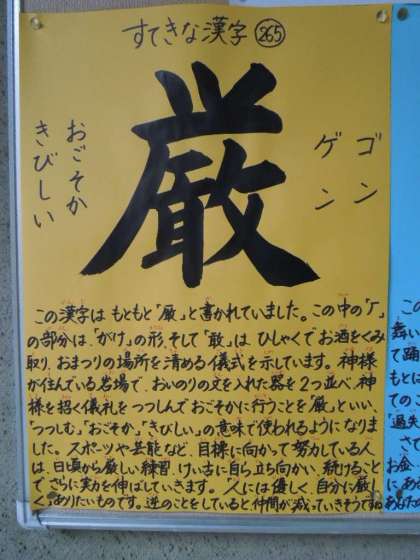 すてきな漢字 265
厳
ゴン
ゲン
おごそか
きびしい
この漢字は もともと「厳」と書かれていました。この中の「厂」
の部分は、「がけ」の形、そして「敢」は、ひしゃくでお酒をくみ
取り、おまつりの場所を清める儀式を示しています。神様
が住んでいる岩場で、おいのりの文を入れた器を2つ並べ、神
様を招く儀礼をつつしんでおごそかに行うことを「厳」といい、
「つつしむ」、「おごそか」、「きびしい」の意味で使われるようになりま
した。スポーツや芸能など、目標に向かって努力している人
は、日頃から厳しい練習、けい古に自ら立ち向かい、続けること
でさらに実力を伸ばしていきます。人には優しく、自分に厳し
く。ありたいものです。逆のことをしていると仲間が減っていきそうですね
この
舞い
て踊
てのこ
「過失
さて
お金
にある